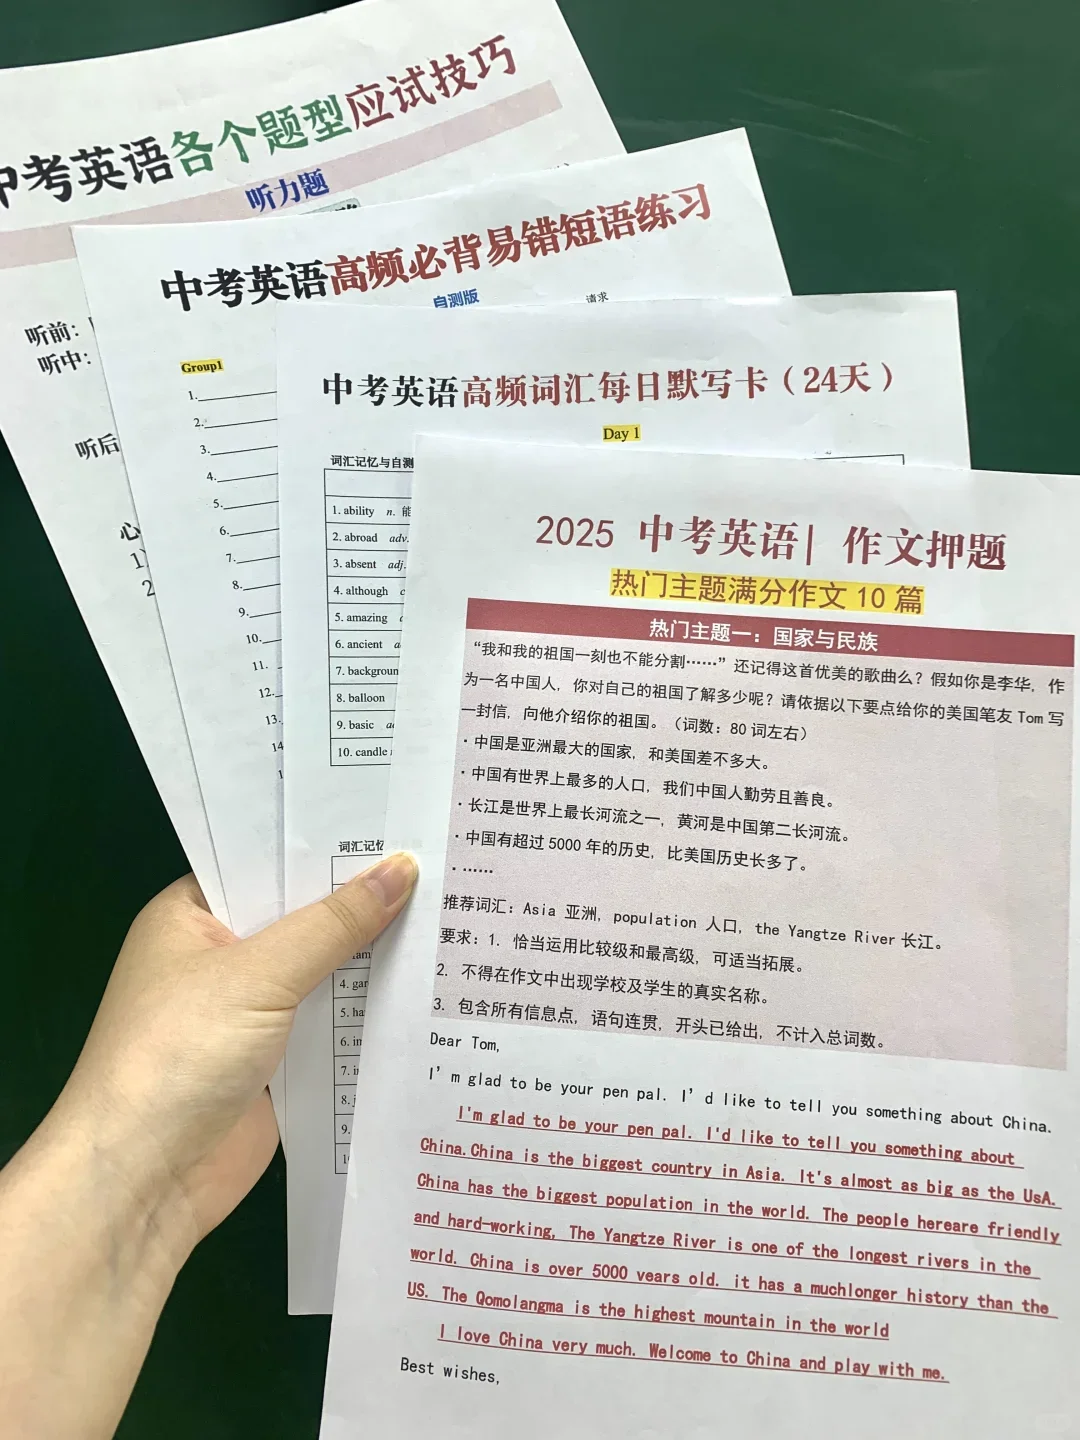 中考英语各个题型应试技巧
听力题
听前:
听中:
听后
心
1)
2
中考英语高频必背易错短语练习
自测版
请求
Group1
1.
2.
3.
4.
5.
6.
7.
8.
9.
10.
11.
12.
13.
14
1
中考英语高频词汇每日默写卡(24天)
Day 1
词汇记忆与自测
1. ability n. 能
2. abroad adv.
3. absent adj.
4. although c
5. amazing
6. ancient a
7. backgroun
8. balloon
9. basic a
10. candle
词汇记忆
4. gar
5. ha
6. in
7. in
8. j
9.
1
2025 中考英语| 作文押题
热门主题满分作文 10 篇
热门主题一:国家与民族
“我和我的祖国一刻也不能分割……”还记得这首优美的歌曲么?假如你是李华,作
为一名中国人,你对自己的祖国了解多少呢?请依据以下要点给你的美国笔友 Tom 写
一封信,向他介绍你的祖国。(词数:80 词左右)
·中国是亚洲最大的国家,和美国差不多大。
·中国有世界上最多的人口,我们中国人勤劳且善良。
·长江是世界上最长河流之一,黄河是中国第二长河流。
·中国有超过 5000 年的历史,比美国历史长多了。
·……
推荐词汇:Asia 亚洲, population 人口, the Yangtze River 长江。
要求:1. 恰当运用比较级和最高级,可适当拓展。
2. 不得在作文中出现学校及学生的真实名称。
3. 包含所有信息点,语句连贯,开头已给出,不计入总词数。
Dear Tom,
I’m glad to be your pen pal. I’d like to tell you something about China.
I'm glad to be your pen pal. I'd like to tell you something about
China.China is the biggest country in Asia. It's almost as big as the UsA.
China has the biggest population in the world. The people hereare friendly
and hard-working, The Yangtze River is one of the longest rivers in the
world. China is over 5000 years old. it has a muchlonger history than the
US. The Qomolangma is the highest mountain in the world
I love China very much. Welcome to China and play with me.
Best wishes,